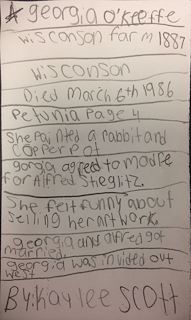 * georgia o'keeffe
wisconson farm 1887
wisconson
Died March 6th 1986
Petunia Page 4
She Painted a rabbit and
copper pot
gorgia agreed to modle
for Alfred Steglitz.
She felt funny about
selling her art work
georgia and alfred got
married.
georgia was invided out
west
By: Kaylee Scott